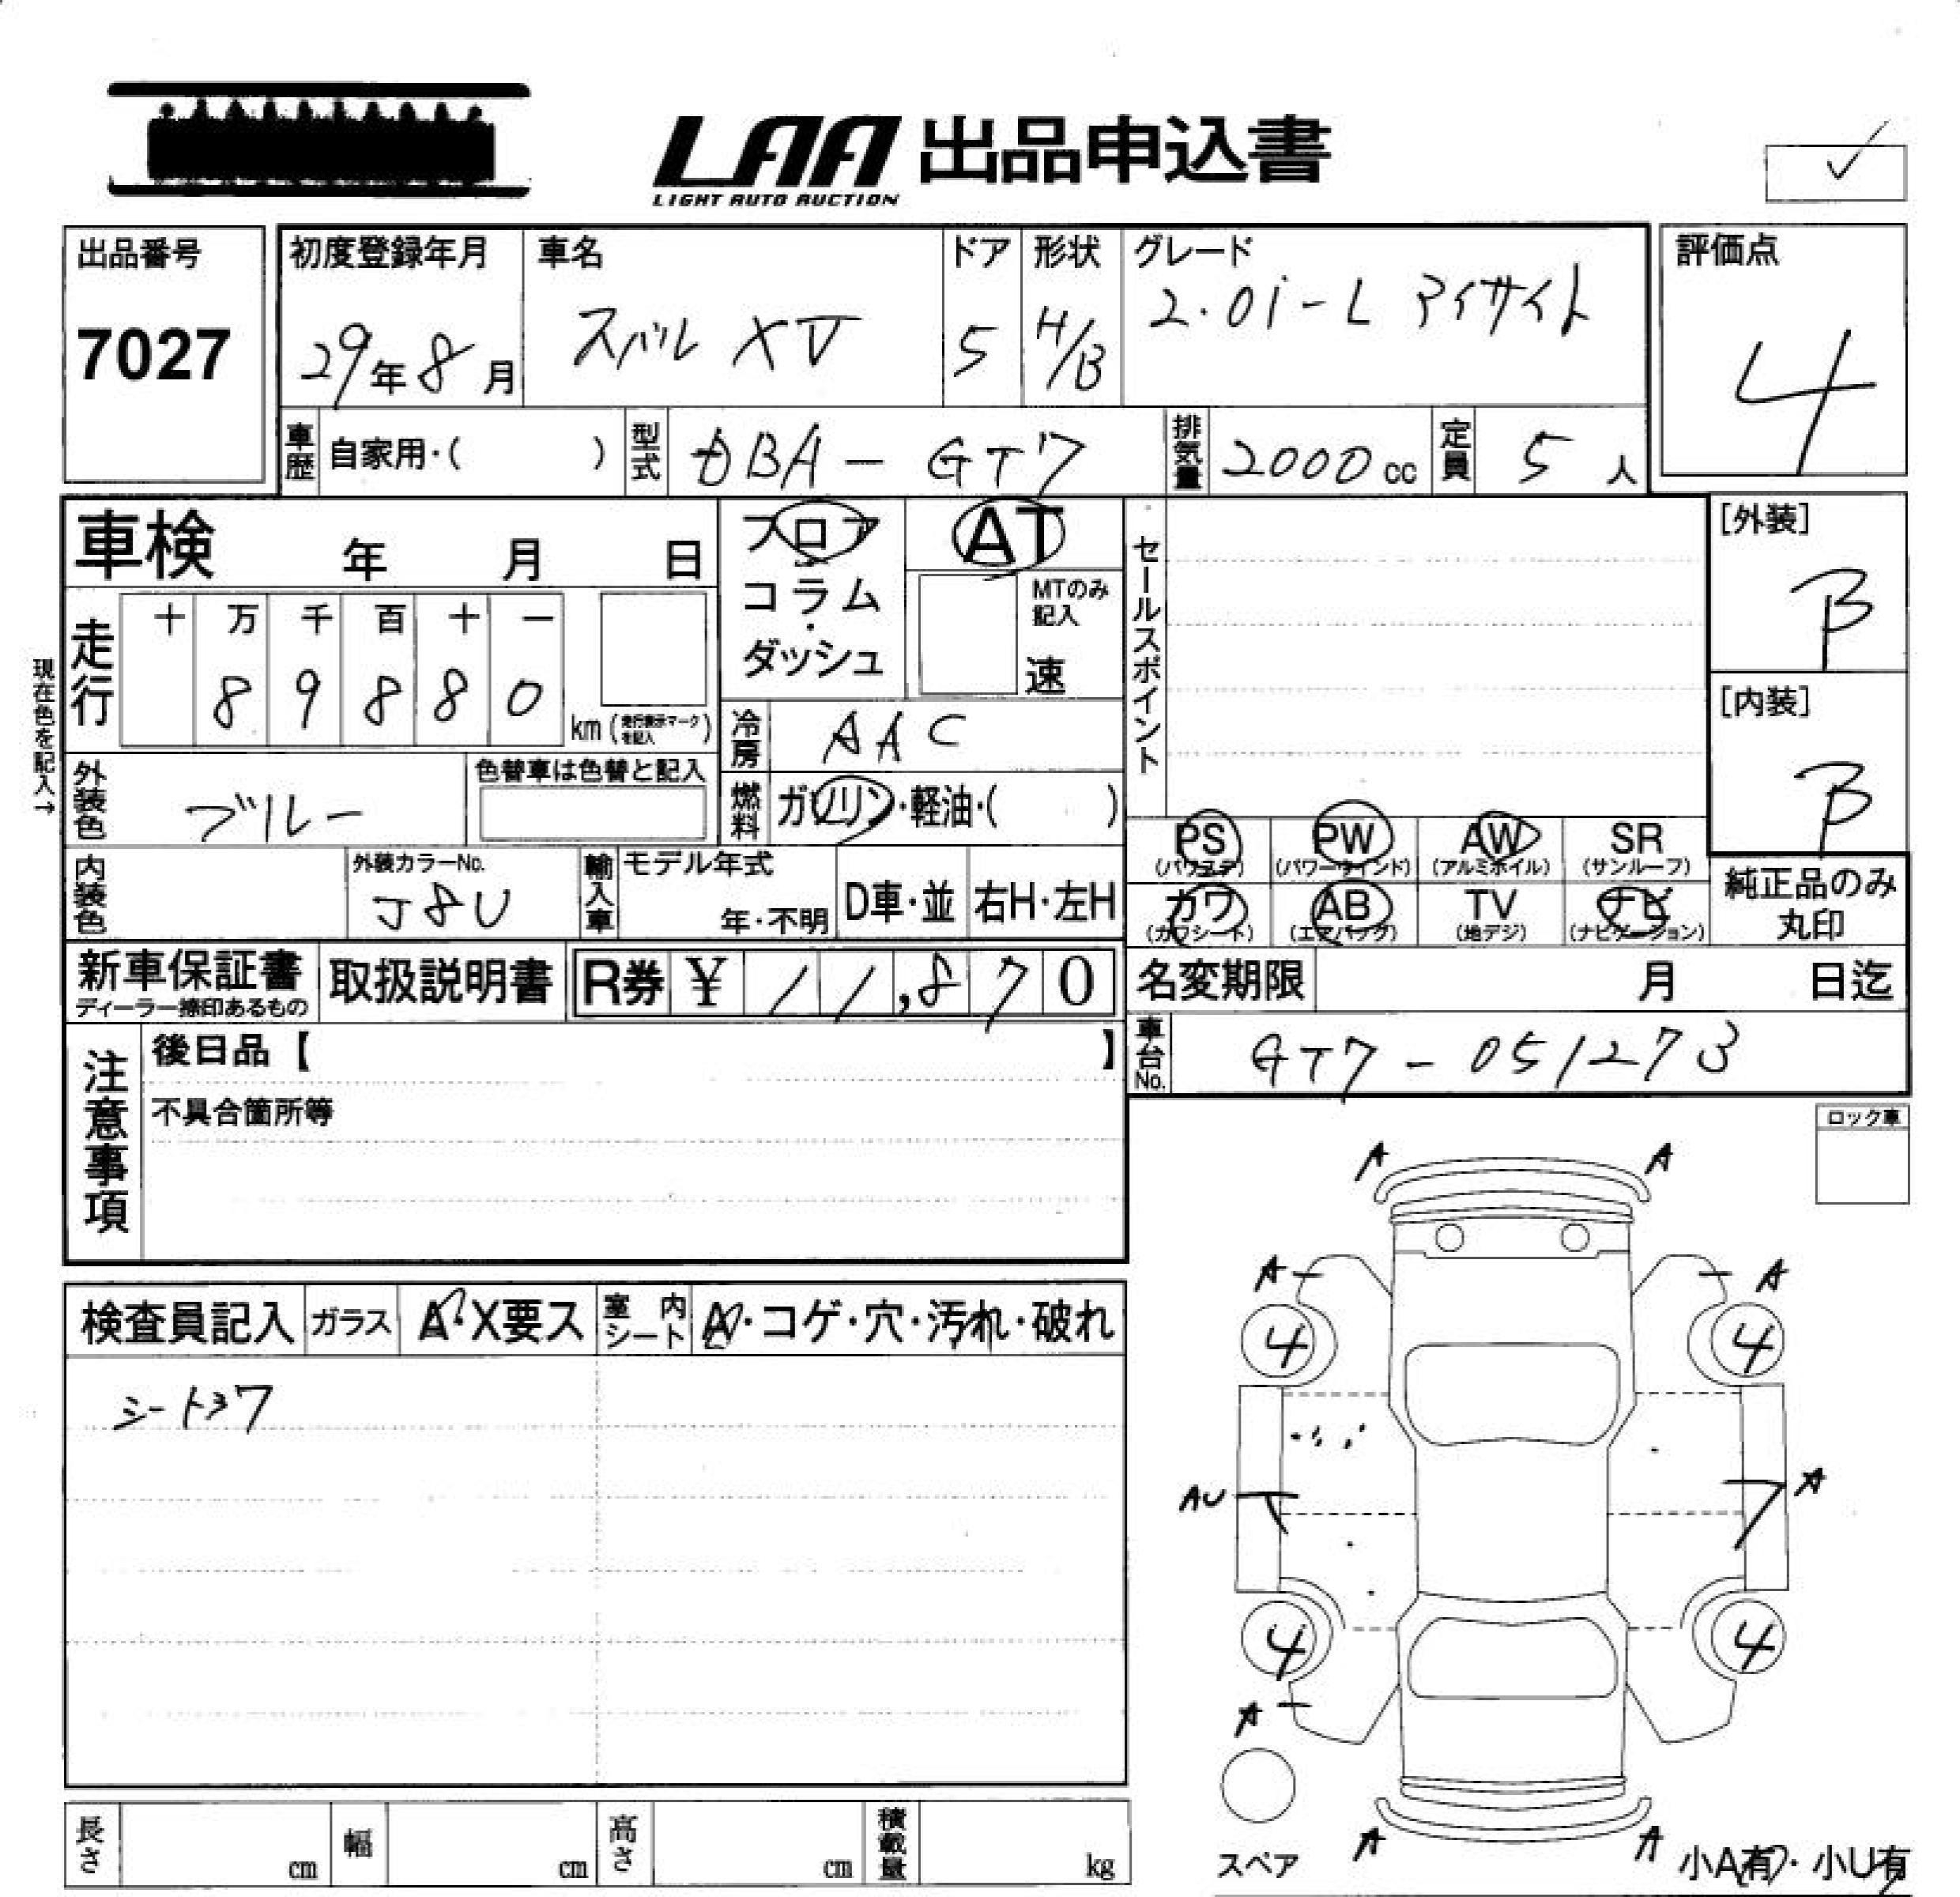 LAA 出品申込書
LIGHT AUTO AUCTION
✓
出品番号
7027
初度登録年月
29年8月
車名
スバル XV
ドア
5
形状
H/B
グレード
2.0i-L アイサイト
評価点
4
車歴 自家用・( )
型式 DBA-GT7
排気量 2000cc
定員 5人
車検 年 月 日
フロア
コラム
・
ダッシュ
AT
MTのみ
記入
速
セールスポイント
[外装]
B
現在色を記入→
走行
十 万 千 百 十 一
8 9 8 8 0
km (走行表示マークを記入)
[内装]
B
冷房 AAC
外装色 ブルー
色替車は色替と記入
燃料 ガソリン・軽油・( )
PS (パワステ)
PW (パワーウインド)
AW (アルミホイル)
SR (サンルーフ)
カワ (カワシート)
AB (エアバッグ)
TV (地デジ)
ナビ (ナビゲーション)
純正品のみ
丸印
内装色
外装カラーNo.
J8U
輸入車
モデル年式
年・不明
D車・並
右H・左H
新車保証書
ディーラー捺印あるもの
取扱説明書
R券 ¥ 11,870
名変期限 月 日迄
車台No. GT7-051273
注意事項
後日品【 】
不具合箇所等
ロック車
A A
A A
4 4
AU A
4 4
A
A A
スペア
小A有・小U有
検査員記入
ガラス A・X要ス
室内シート A・コゲ・穴・汚れ・破れ
長さ cm
幅 cm
高さ cm
積載量 kg